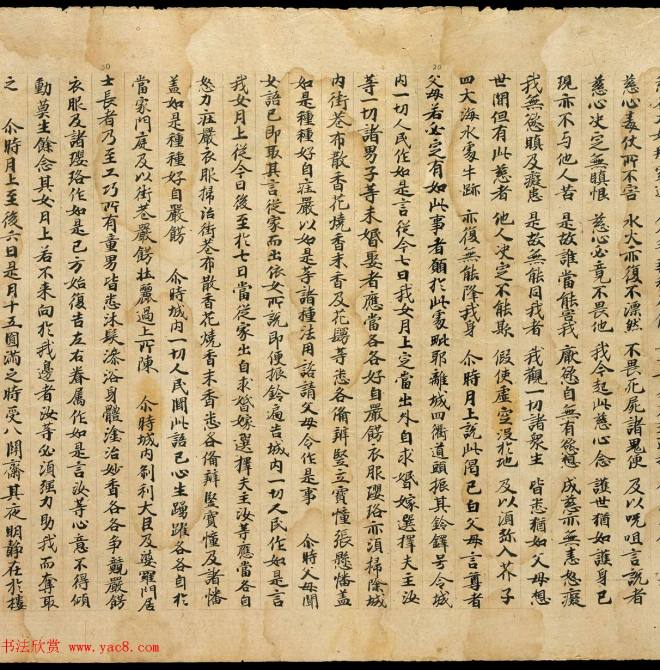 慈心毒仗所不害 水火亦復不漂然 不畏死屍諸鬼使 及以呪咀言說者
慈心決定無瞋恨 慈心必竟不畏他 我今起此慈心念 護世猶如護身已
現亦不与他人苦 是故誰當能害我 厭慾自無有慾想 成慈亦無恚怒癡
我無慾瞋及癡恚 是故無能同我者 我觀一切諸衆生 皆悉猶如父母想
世間但有此慈者 他人決定不能欺 假使虛空沒於地 及以須弥入芥子
四大海水處牛跡 亦復無能降我身 尒時月上說此偈已白父母言尊者
父母若必定有如此事者願於此處毗耶離城四衢道頭振其鈴鐸号令城
内一切人民作如是言從今七日我女月上定當出外自求婚嫁選擇夫主汝
等一切諸男子等未婚娶者應當各各好自嚴餝衣服瓔珞亦須掃除城
内街巷布散香花燒香末香及花鬘等悉各俻辦竪立寶憧張懸幡蓋
如是種種好自莊嚴以如是等諸種法用諮請父母令作是事 尒時父母聞
女語已即取其言從家而出依女所說即便振鈴遍告城内一切人民作如是言
我女月上從今日後至於七日當從家出自求婚嫁選擇夫主汝等應當各自
怒力莊嚴衣服掃治街巷布散香花燒香末香悉各俻辦竪寶憧及諸幡
蓋如是種種好自嚴餝 尒時城内一切人民聞此語已心生踴躍各各自於
當家門庭及以街巷嚴餝壯麗過上所陳 尒時城内剎利大臣及婆羅門居
士長者乃至工巧所有童男皆悉沐髮澡浴身體塗治妙香各各爭競嚴餝
衣服及諸瓔珞作如是已方始復告左右眷属作如是言汝等心意不得傾
動莫生餘念其女月上若不來向於我邊者汝等必須强力助我而奪取
之 尒時月上至後六日是月十五圓滿之時受八關齋其夜明静在於樓
20
30
书法欣赏 www.yac8.com